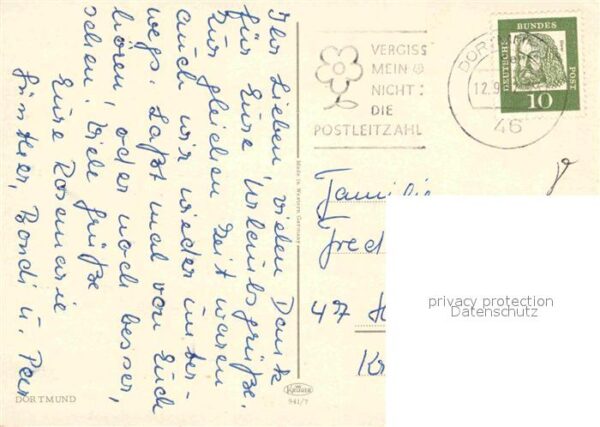 Ihr Lieben, vielen Dank
für Eure Urlaubsgrüße.
Zur gleichen Zeit waren
auch wir wieder unter-
wegs. Laßt mal von Euch
hören oder noch besser,
sehen! Viele Grüße
Eure Rosemarie
Günther, Bondi u. Peer
DORTMUND
Made in Western Germany
Krüger
941/7
VERGISS
MEIN
NICHT
DIE
POSTLEITZAHL
DORTM
12.9
46
DEUTSCHE
BUNDES
POST
10
Familie
Fred
47
privacy protection
Datenschutz